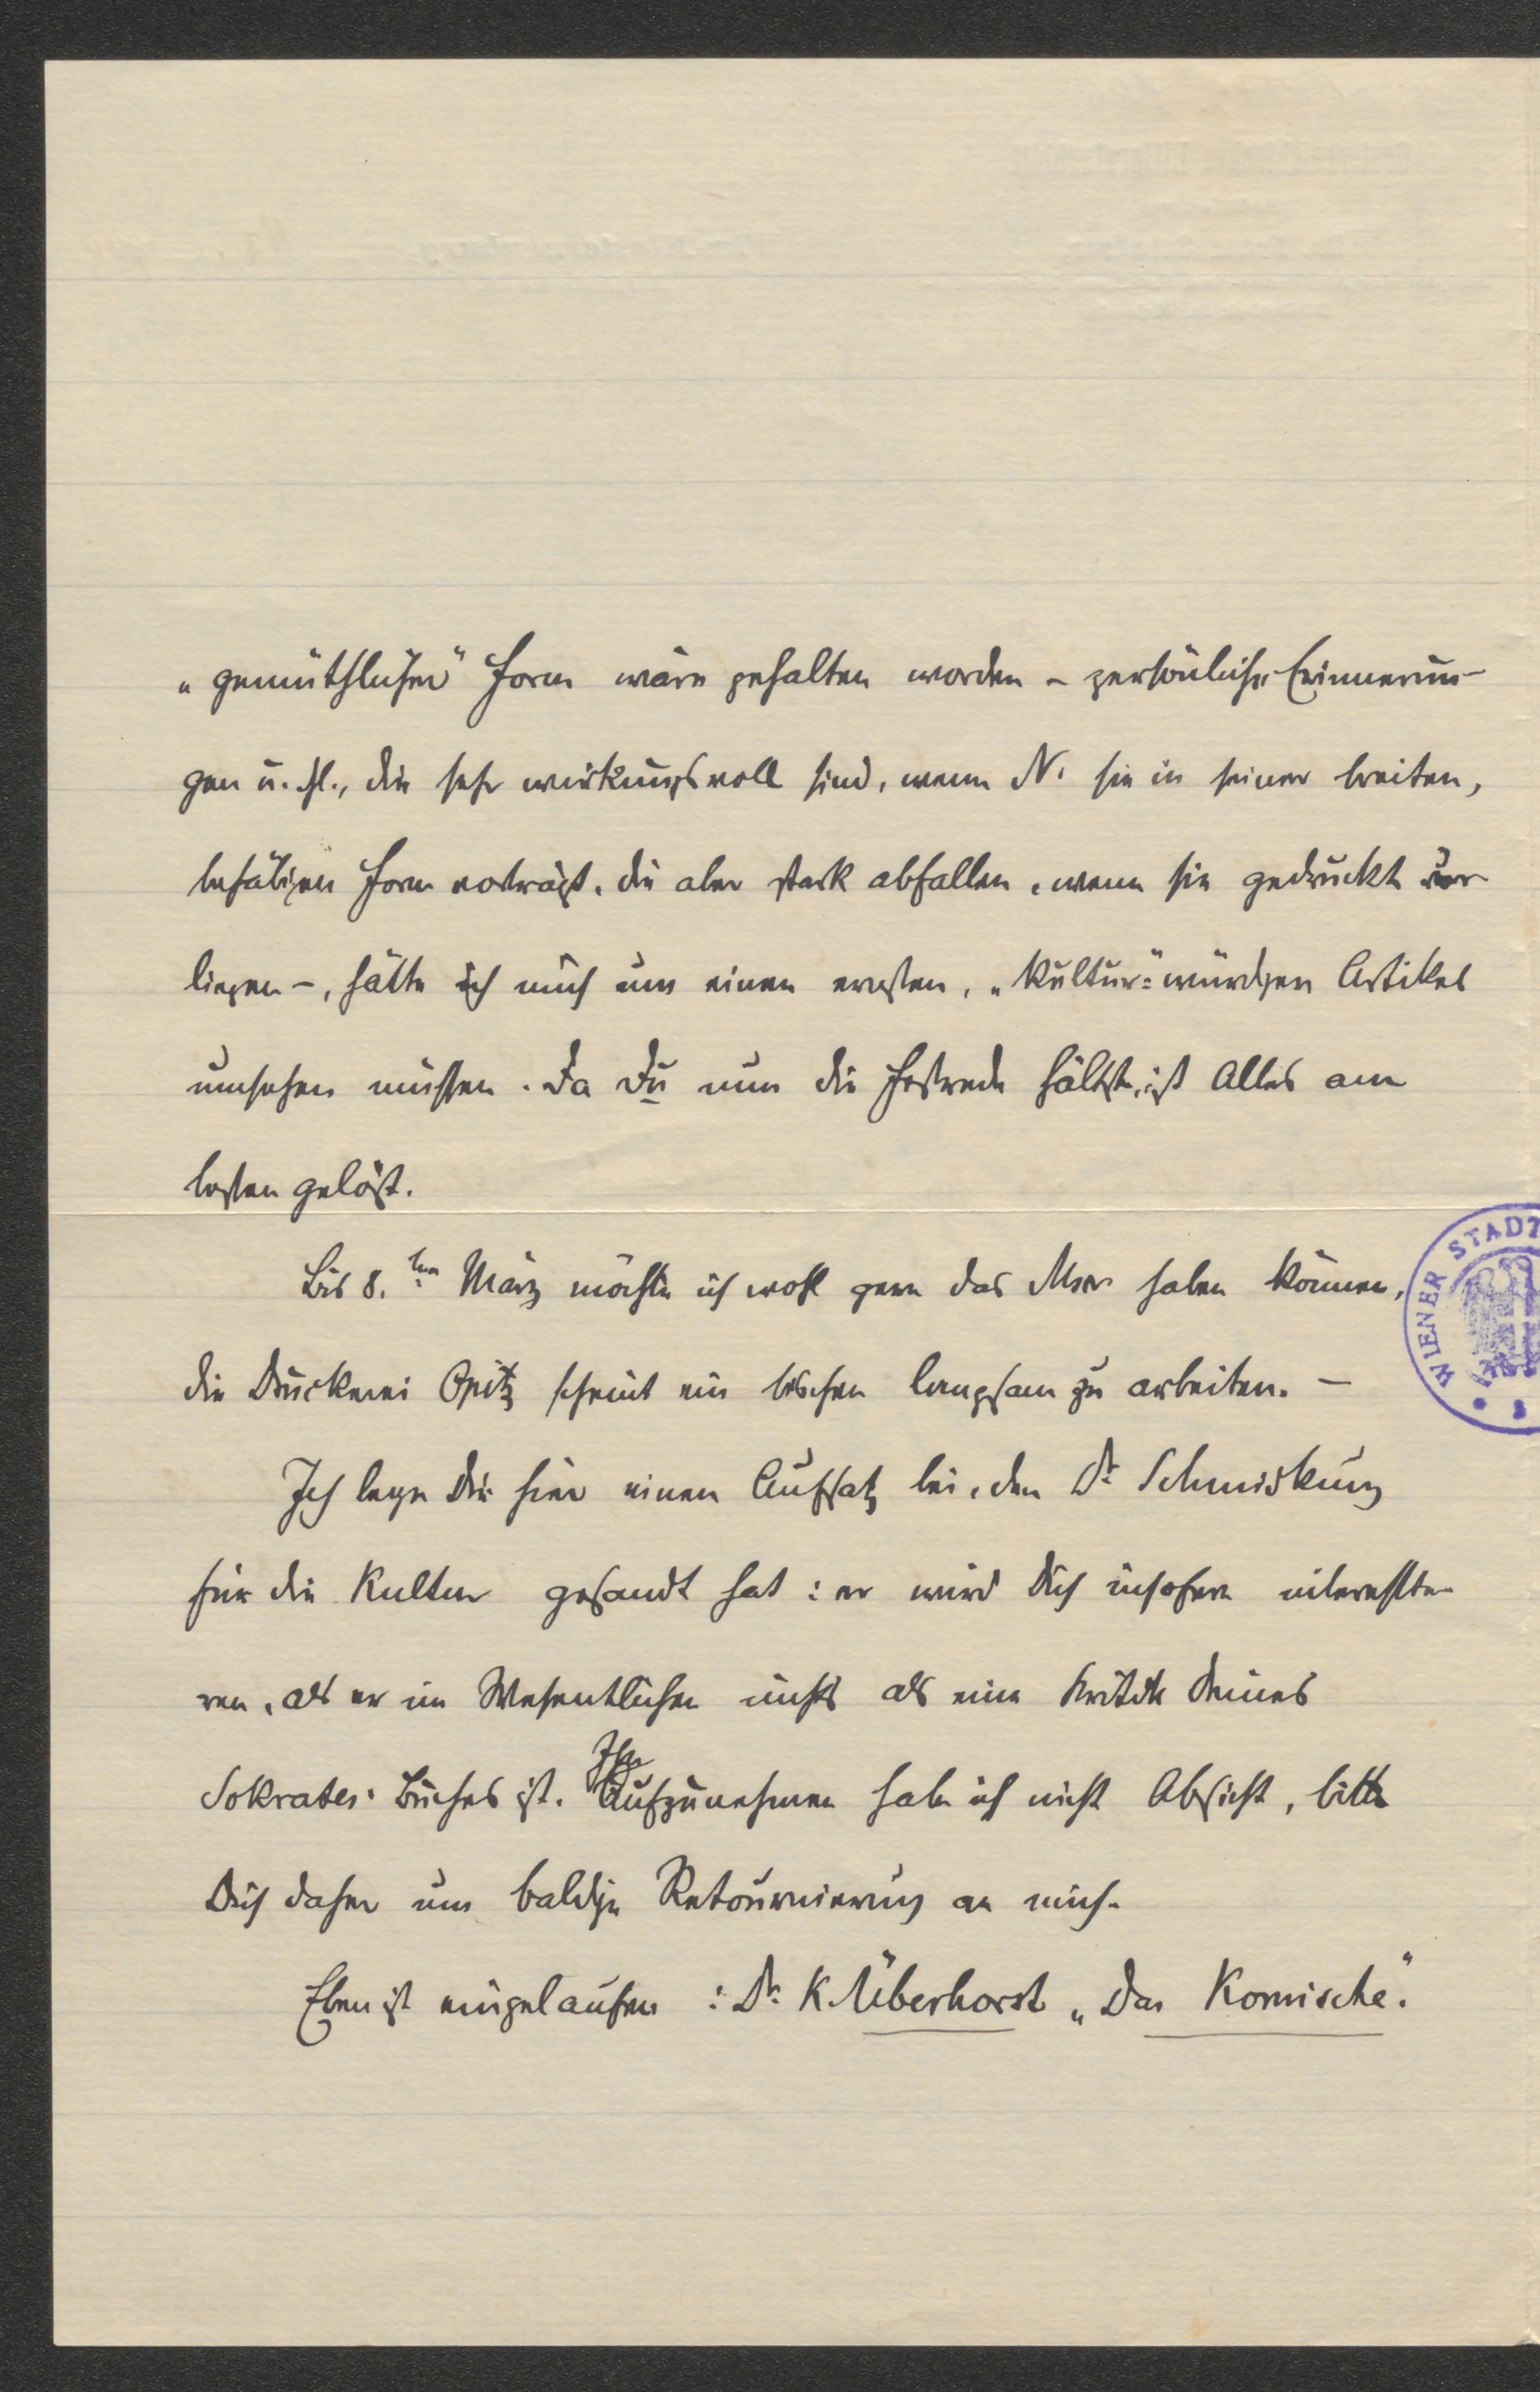 „gemüthlichen" Form wäre gehalten worden – persönliche Erinnerun-
gen u. dl., die sehr wirkungsvoll sind, wenn N. sie in seiner breiten,
behäbigen Form vorträgt, die aber stark abfallen, wenn sie gedruckt vor
liegen –, hätte ich mich um einen ernsten, „Kultur"=würdigen Artikel
umsehen müssen. Da Du nun die Festrede hältst, ist Alles am
besten gelöst.
Bis 8.ten März möchte ich wohl gern das Mscr haben können,
die Druckerei Opitz scheint ein bischen langsam zu arbeiten. –
Ich lege Dir hier einen Aufsatz bei, den Dr Schmidkunz
für die Kultur gesandt hat: er wird Dich insofern interessie-
ren, als er im Wesentlichen nichts als eine Kritik Deines
Sokrates-Buches ist. Ihn aufzunehmen habe ich nicht Absicht, bitte
Dich daher um baldige Retournierung an mich.
Eben ist eingelaufen: Dr. K. Überhorst „Das Komische".
WIENER STADT